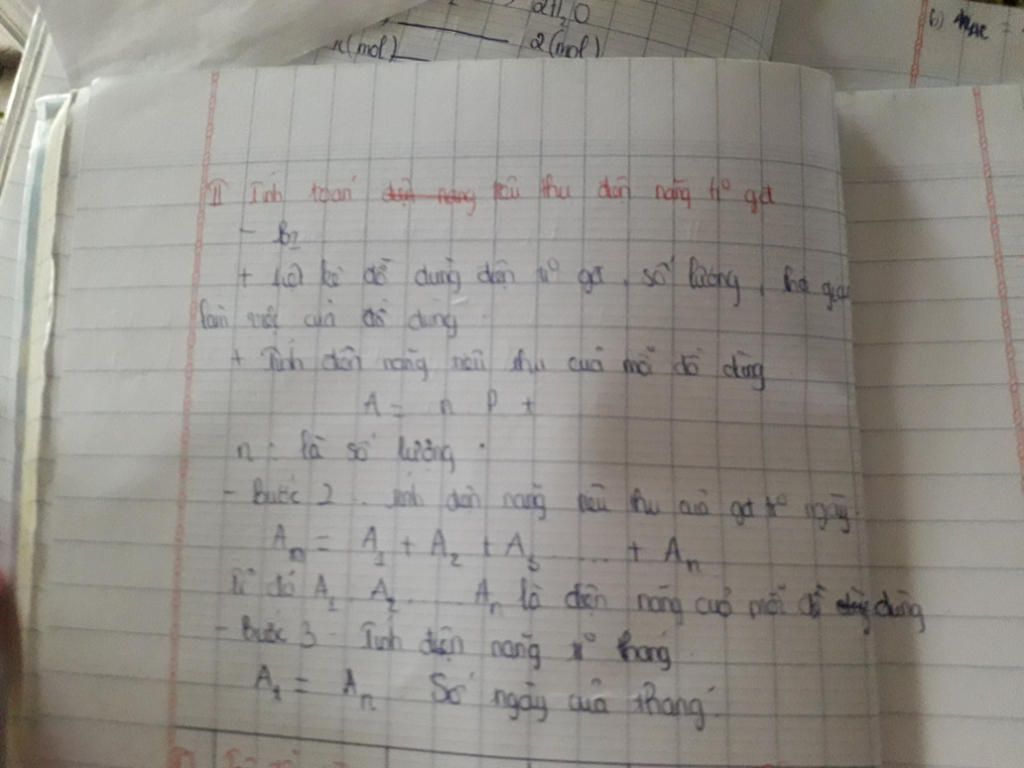 2H₂O
(mol) 2 (mol)
b)
II Tính toán điện năng tiêu thu điện năng tr° gđ
- B1
+ kê đồ dùng điện tr° gđ, số lường,
làm việc của đồ dùng
+ Tính điện năng tiêu thu cuả mỗi đồ dùng
A = n P t
n : là số lường.
- Bước 2 .. tính điện năng tiêu thu của gđ tr° ngày.
An = A1 + A2 + A3 .... + An
đó A1 A2 .... An là điện năng cuả mỗi đồ dùng
- Bước 3 - Tính điện năng tr° tháng
At = An Số ngày của tháng.